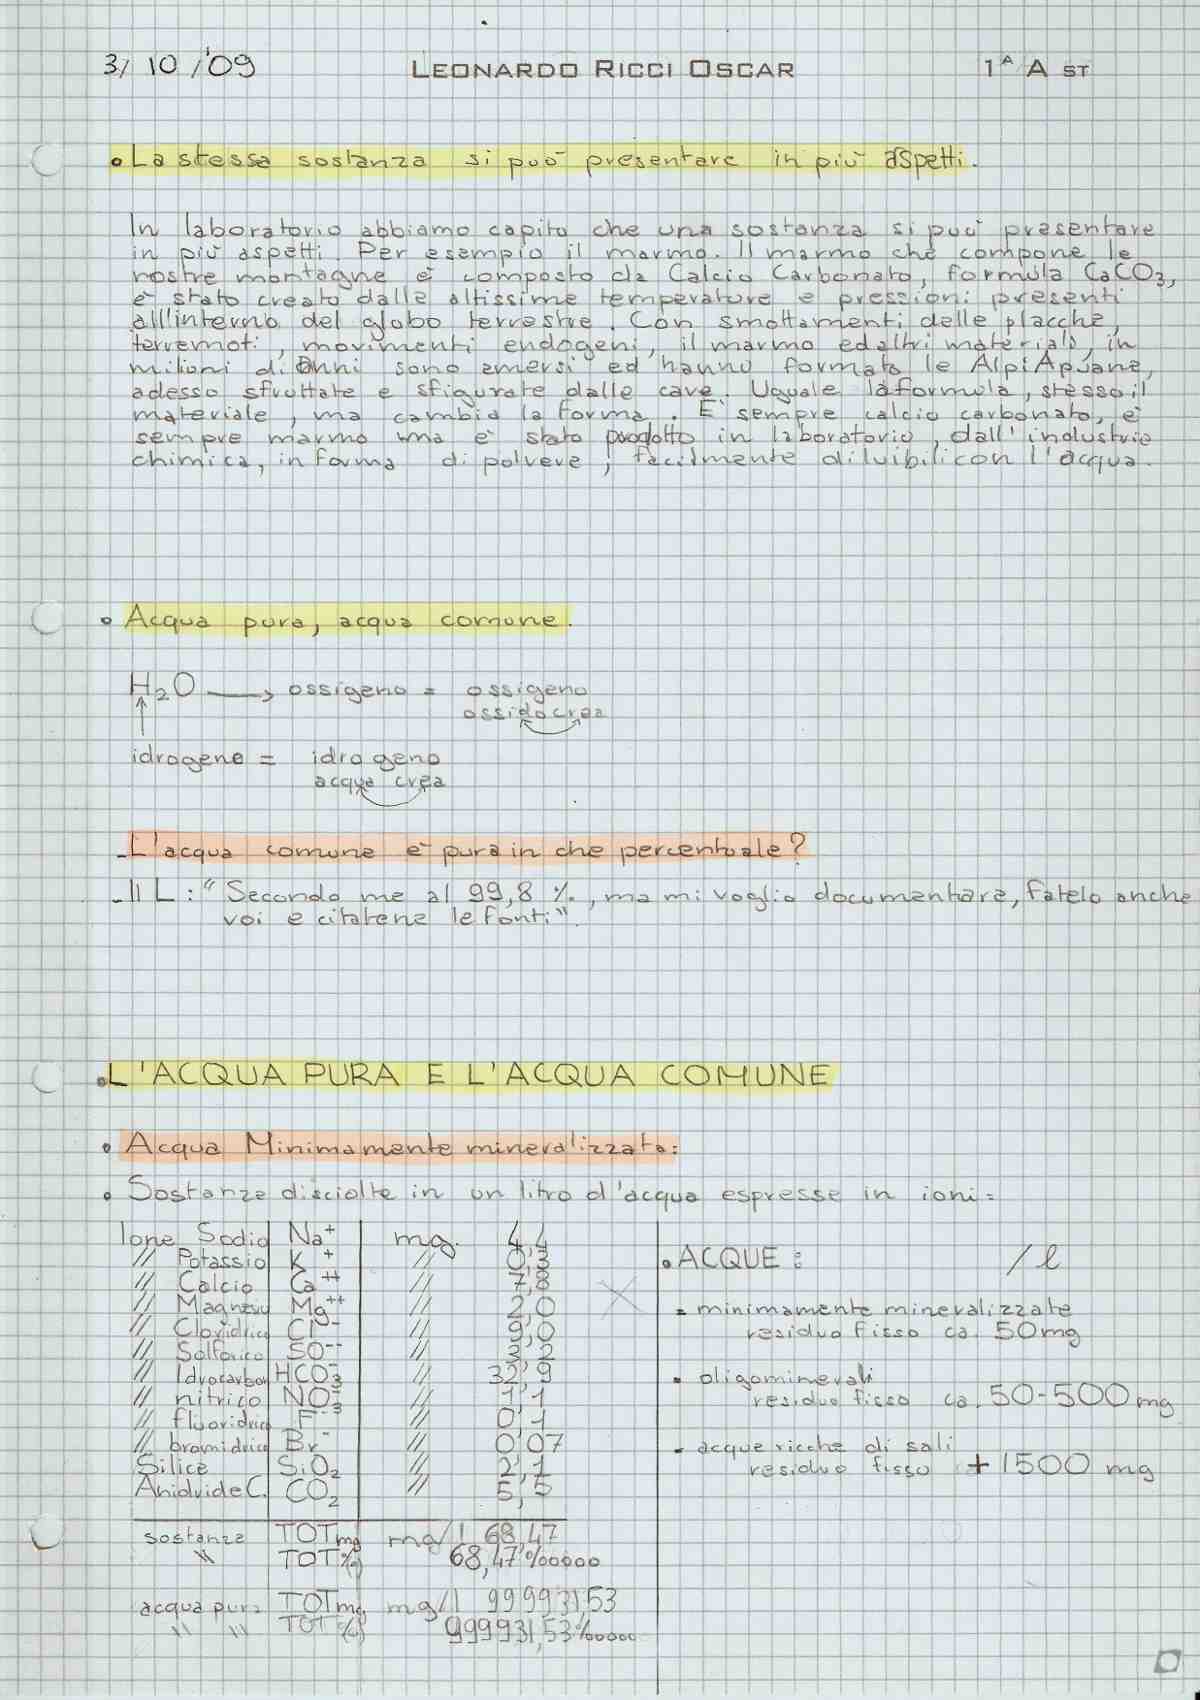 3/10/'09 LEONARDO RICCI OSCAR 1ᴬ A ST
• La stessa sostanza si può presentare in più aspetti.
In laboratorio abbiamo capito che una sostanza si può presentare
in più aspetti. Per esempio il marmo. Il marmo che compone le
nostre montagne è composto da Calcio Carbonato, formula CaCO₃,
è stato creato dalle altissime temperature e pressioni presenti
all'interno del globo terrestre. Con smottamenti delle placche,
terremoti, movimenti endogeni, il marmo ed altri materiali, in
milioni di anni sono emersi ed hanno formato le Alpi Apuane,
adesso sfruttate e sfigurate dalle cave. Uguale la formula, stesso il
materiale, ma cambia la forma. È sempre calcio carbonato, è
sempre marmo ma è stato prodotto in laboratorio, dall'industria
chimica, in forma di polvere, facilmente diluibili con l'acqua.
• Acqua pura, acqua comune.
H₂O → ossigeno = ossigeno
ossido crea
idrogeno = idrogeno
acqua crea
- L'acqua comune è pura in che percentuale?
- Il L: "Secondo me al 99,8 %, ma mi voglio documentare, fatelo anche
voi e citatene le fonti".
• L'ACQUA PURA E L'ACQUA COMUNE
• Acqua Minimamente mineralizzata:
• Sostanze disciolte in un litro d'acqua espresse in ioni =
Ione Sodio Na⁺ mg. 4,4
// Potassio K⁺ // 0,3
// Calcio Ca⁺⁺ // 7,8
// Magnesio Mg⁺⁺ // 2,0
// Cloridrico Cl⁻ // 9,0
// Solforico SO⁻⁻ // 3,2
// Idrocarbon HCO₃⁻ // 32,9
// nitrico NO₃⁻ // 1,1
// fluoridrico F⁻ // 0,1
// bromidrico Br⁻ // 0,07
Silice SiO₂ // 2,1
Anidride C. CO₂ // 5,5
sostanze TOT mg mg/l 68,47
\\ TOT % 68,47 %0000
acqua pura TOT mg mg/l 999931,53
\\ \\ TOT % 999931,53 %0000
• ACQUE: /l
= minimamente mineralizzate
residuo fisso ca. 50 mg
• oligominerali
residuo fisso ca. 50-500 mg
- acque ricche di sali
residuo fisso +1500 mg